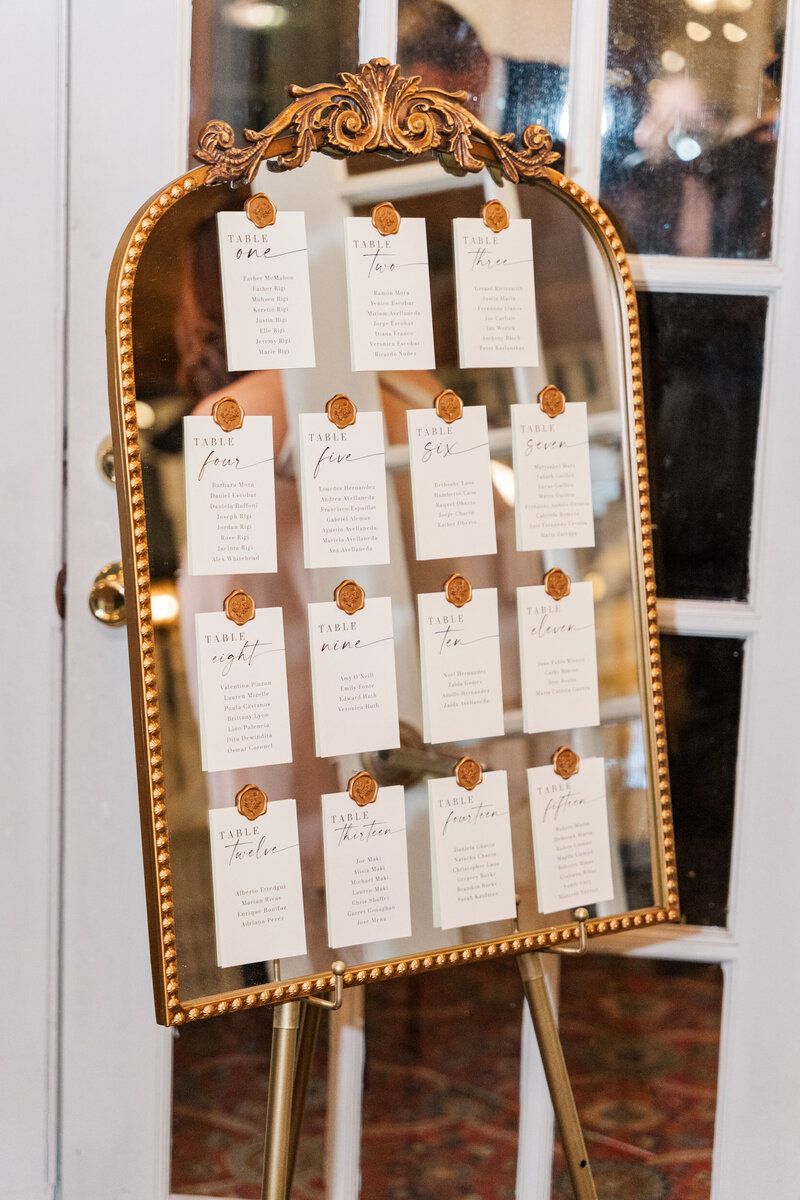 TABLE
one
Father McMahon
Father Rigi
Mohsen Rigi
Kerstin Rigi
Justin Rigi
Elle Rigi
Jeremy Rigi
Marie Rigi
TABLE
two
Ramon Mora
Yenice Escobar
Miriam Avellaneda
Jorge Escobar
Diana Franco
Veronica Escobar
Ricardo Nuñez
TABLE
three
Gerard Kleinsmith
Justin Maria
Fernando Llanos
Joe Carlisle
Ian Werick
Anthony Block
Peter Kazlauskas
TABLE
four
Barbara Mora
Daniel Escobar
Daniela Buffoni
Joseph Rigi
Jordan Rigi
Rose Rigi
Jacinta Rigi
Alex Whitehead
TABLE
five
Lourdes Hernandez
Andrea Avellaneda
Francisco Espuillas
Gabriel Aleman
Agustin Avellaneda
Mariela Avellaneda
Ana Avellaneda
TABLE
six
Bethsaby Laos
Humberto Laos
Raquel Oberto
Jorge Chacin
Esther Oberto
TABLE
seven
Marysabel Mora
Subath Guillen
Lucas Guillen
Mateo Guillen
Fernando Andres
Gabriela Romero
Luis Fernando
Maria
TABLE
eight
Valentina Pinzon
Lauren Mizelle
Paula Castanos
Brittany Lyon
Lino Palencia
Dita Dewindita
Osmar Coronel
TABLE
nine
Amy O'Neill
Emily Fonte
Edward Huth
Veronica Huth
TABLE
ten
Noel Hernandez
Zaida Gomez
Adolfo Hernandez
Zaida Avellaneda
TABLE
eleven
Juan Pablo Rincon
Cathy Rincon
Jose
Maria Carlota Guerra
TABLE
twelve
Alberto Etredgui
Marian Rivas
Enrique Bonifaz
Adriana Perez
TABLE
thirteen
Joe Maki
Alisia Maki
Michael Maki
Lauren Maki
Chris Shaffer
Garret Conaghan
Jose Mena
TABLE
fourteen
Daniela Chacin
Natacha Chacin
Christopher Laos
Gregory Burke
Brandon Burke
Sarah Kaufman
TABLE
fifteen
Robert Marin
Deborah Marin
Ruben Lisman
Magda Lisman
Roberto Ribas
Giuliana Ribas